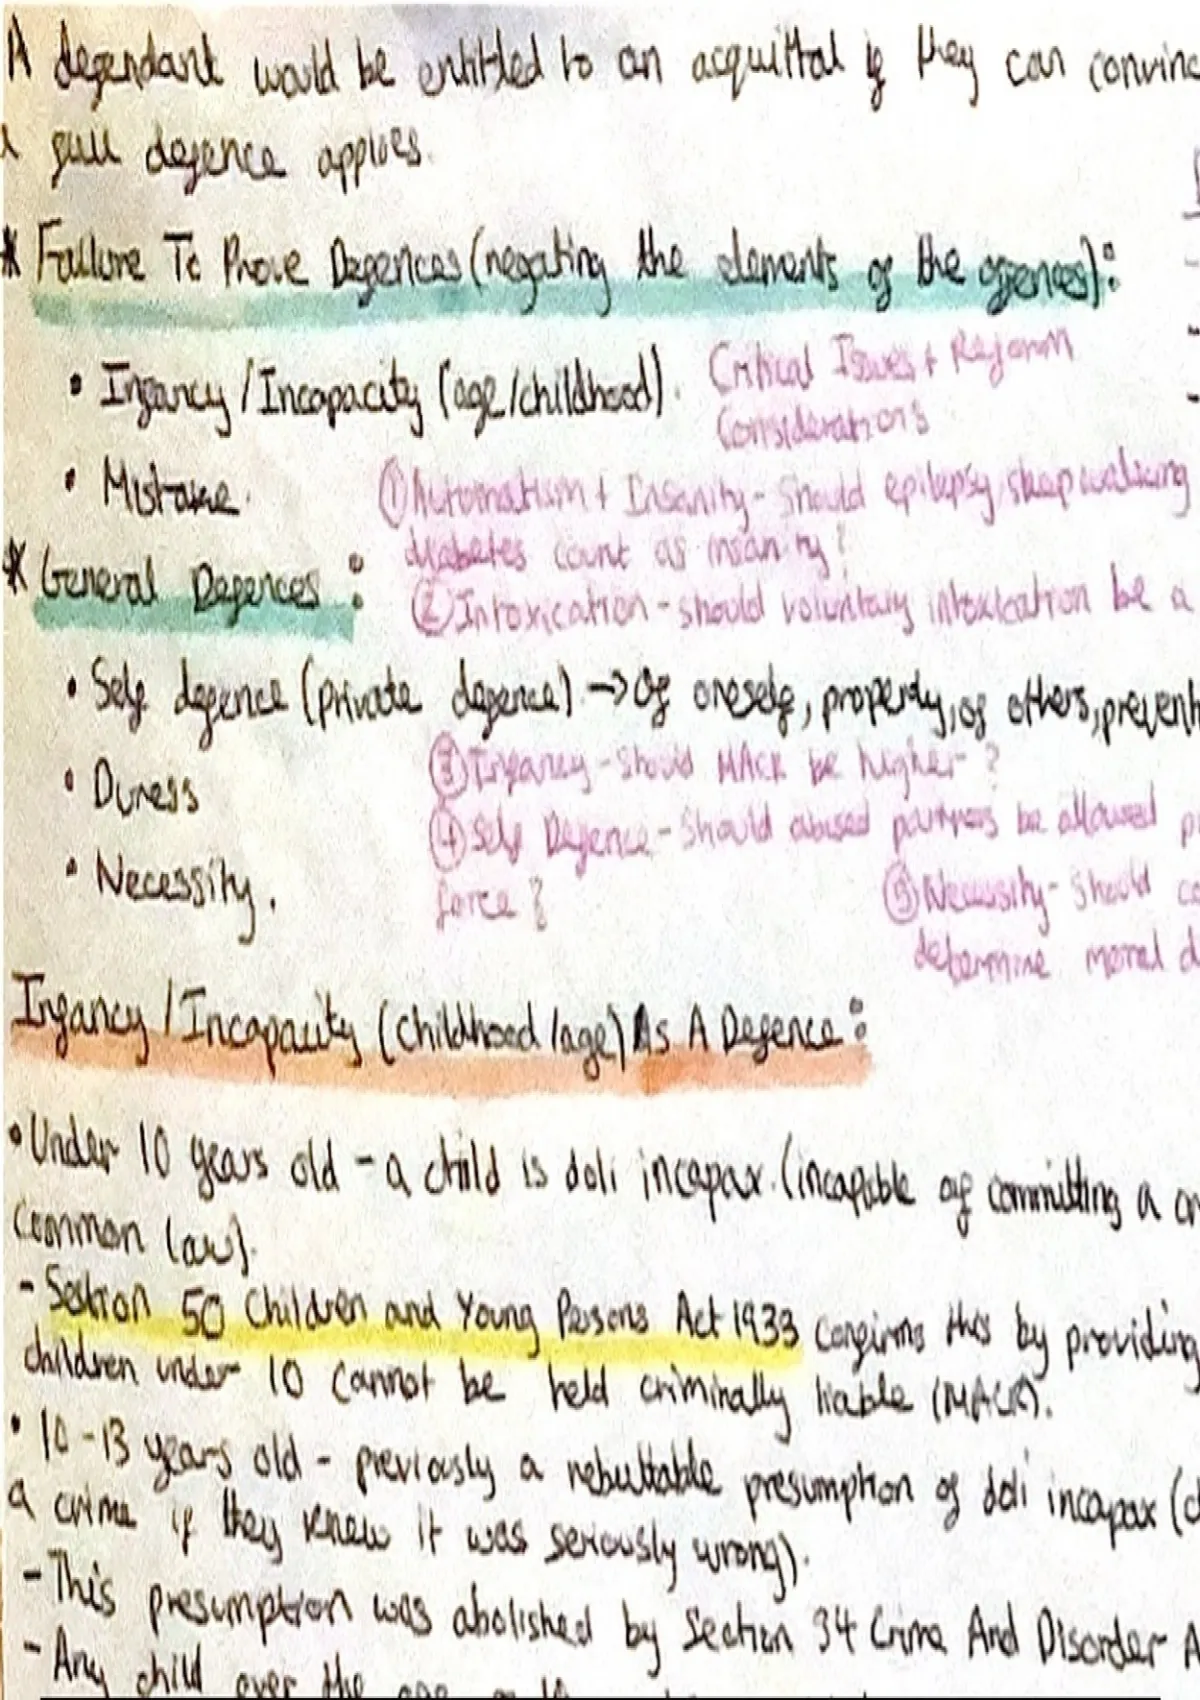 A defendant would be entitled to an acquittal if they can convinc
full defence applies.
* Failure To Prove Defences (negating the elements of the offences):
• Infancy / Incapacity (age/childhood).
Critical Issues + Reform
Considerations
• Mistake.
① Automatism + Insanity - Should epilepsy, sleepwalking
diabetes count as insanity?
* General Defences:
② Intoxication - should voluntary intoxication be a
• Self defence (private defence) → Of oneself, property, of others, prevent
③ Infancy - Should MACR be higher?
• Duress
④ Self Defence - Should abused partners be allowed
force?
• Necessity.
⑤ Necessity - Should
determine moral d
Infancy / Incapacity (childhood/age) As A Defence:
• Under 10 years old - a child is doli incapax. (incapable of committing a cr
common law).
- Section 50 Children and Young Persons Act 1933 confirms this by providing
children under 10 cannot be held criminally liable (MACR).
• 10-13 years old - previously a rebuttable presumption of doli incapax (c
a crime if they knew it was seriously wrong).
- This presumption was abolished by Section 34 Crime And Disorder A
- Any child over the age